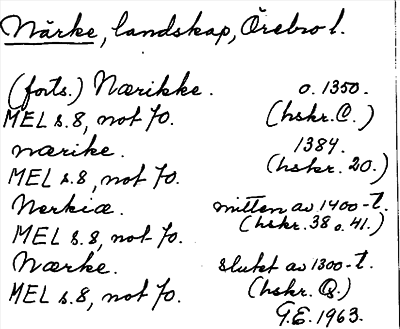 Närke, landskap, Örebro l.
(forts.) Nærikke. o. 1350.
MEL s. 8, not 70. (hskr. C.)
nærike. 1384.
MEL s. 8, not 70. (hskr. 20.)
Nerkiæ. mitten av 1400-t.
MEL s. 8, not 70. (hskr. 38 o. 41.)
Nærke. slutet av 1300-t.
MEL s. 8, not 70. (hskr. Q.)
G.E. 1963.